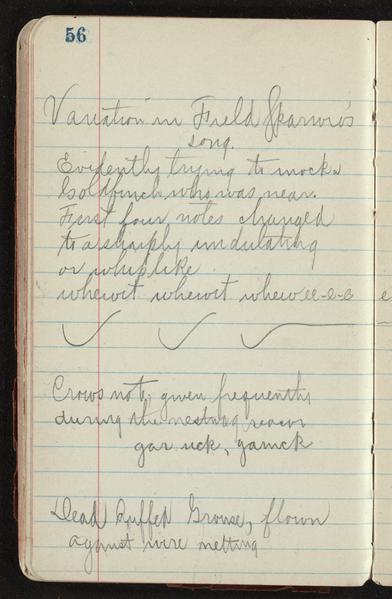 56
Variation in Field Sparrow's
song.
Evidently trying to mock a
Goldfinch who was near.
First four notes changed
to a sharply undulating
or whiplike
whewit whewit whew ee-e-e
Crows not given frequently
during the nesting season
gar uck, garuck
Dead Ruffed Grouse, flown
against wire netting